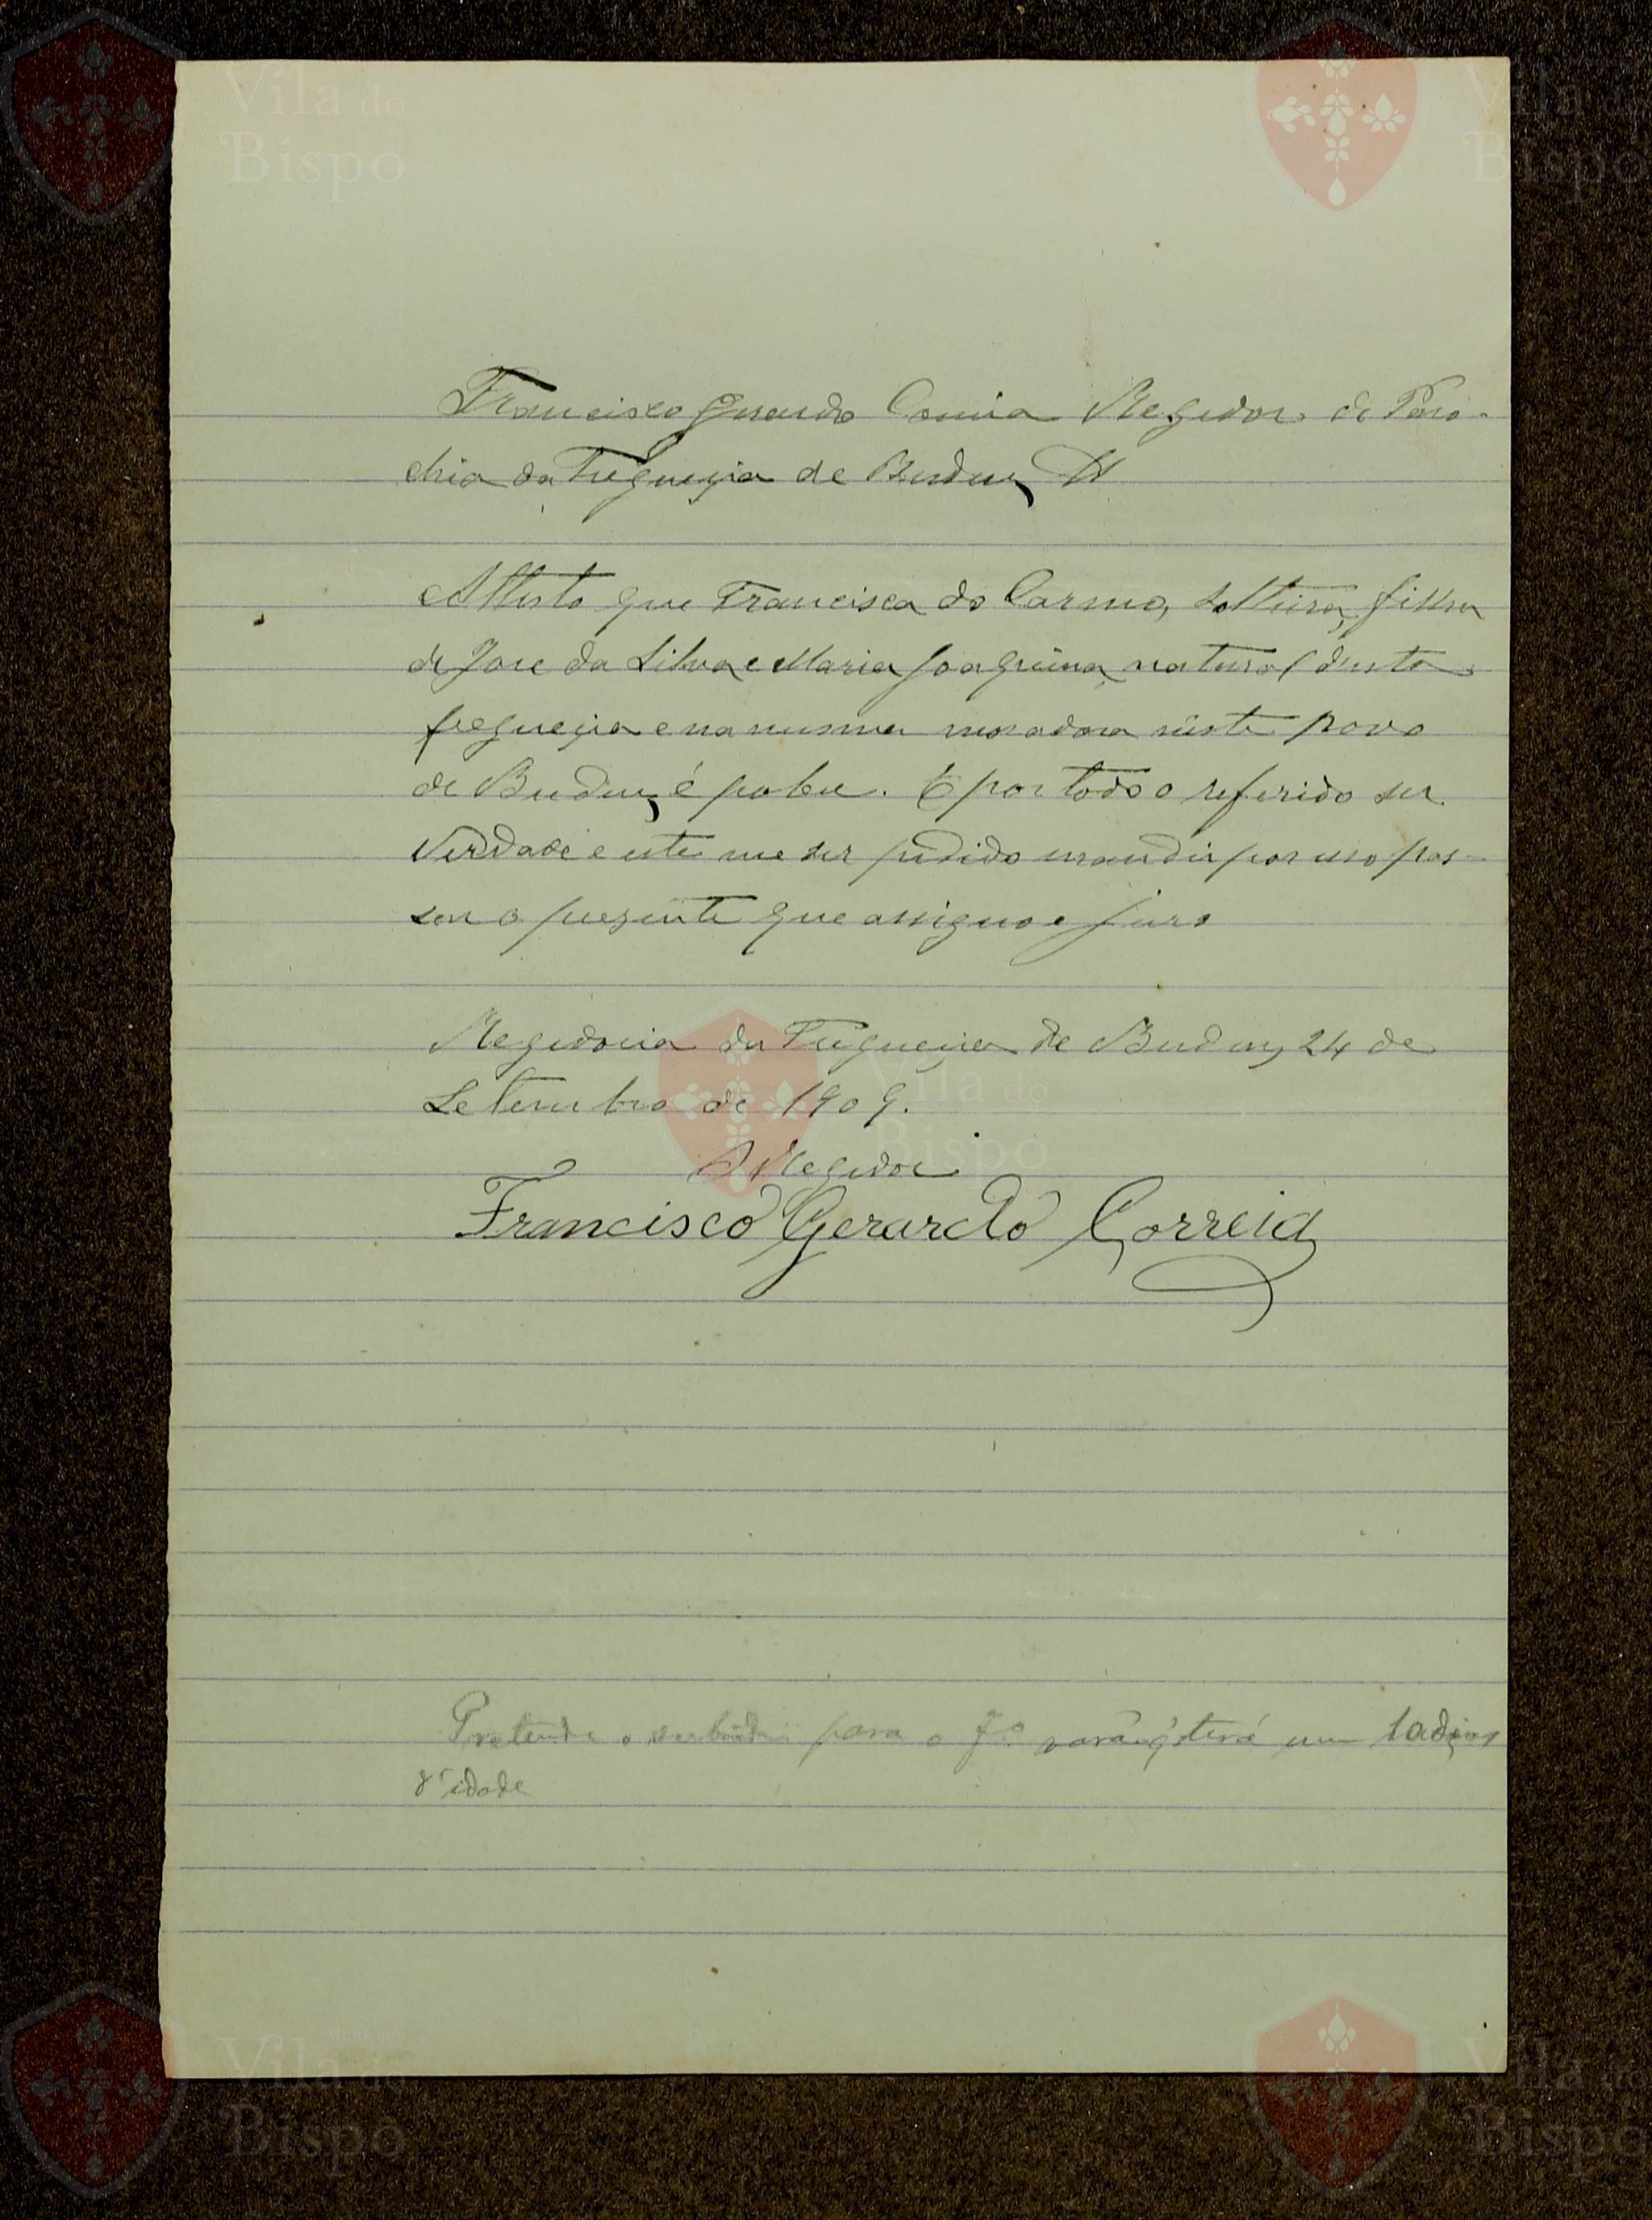 Francisco Gerardo Correia Regedor de Paro-
chia da Freguezia de Budens, &
Attesto que Francisca do Carmo, solteira, filha
de Jose da Silva e Maria Joaquina, natural d'esta
freguezia e na mesma moradora n'este povo
de Budens, é pobre. E por todo o referido ser
verdade e este me ser pedido mandei por isso pas-
sar o presente que assigno e juro
Regedoria da Freguezia de Budens, 24 de
Setembro de 1909.
O Regedor
Francisco Gerardo Correia
Pretende o para o fº varão q' terá um 10 dias
d'idade
Vila do
Bispo